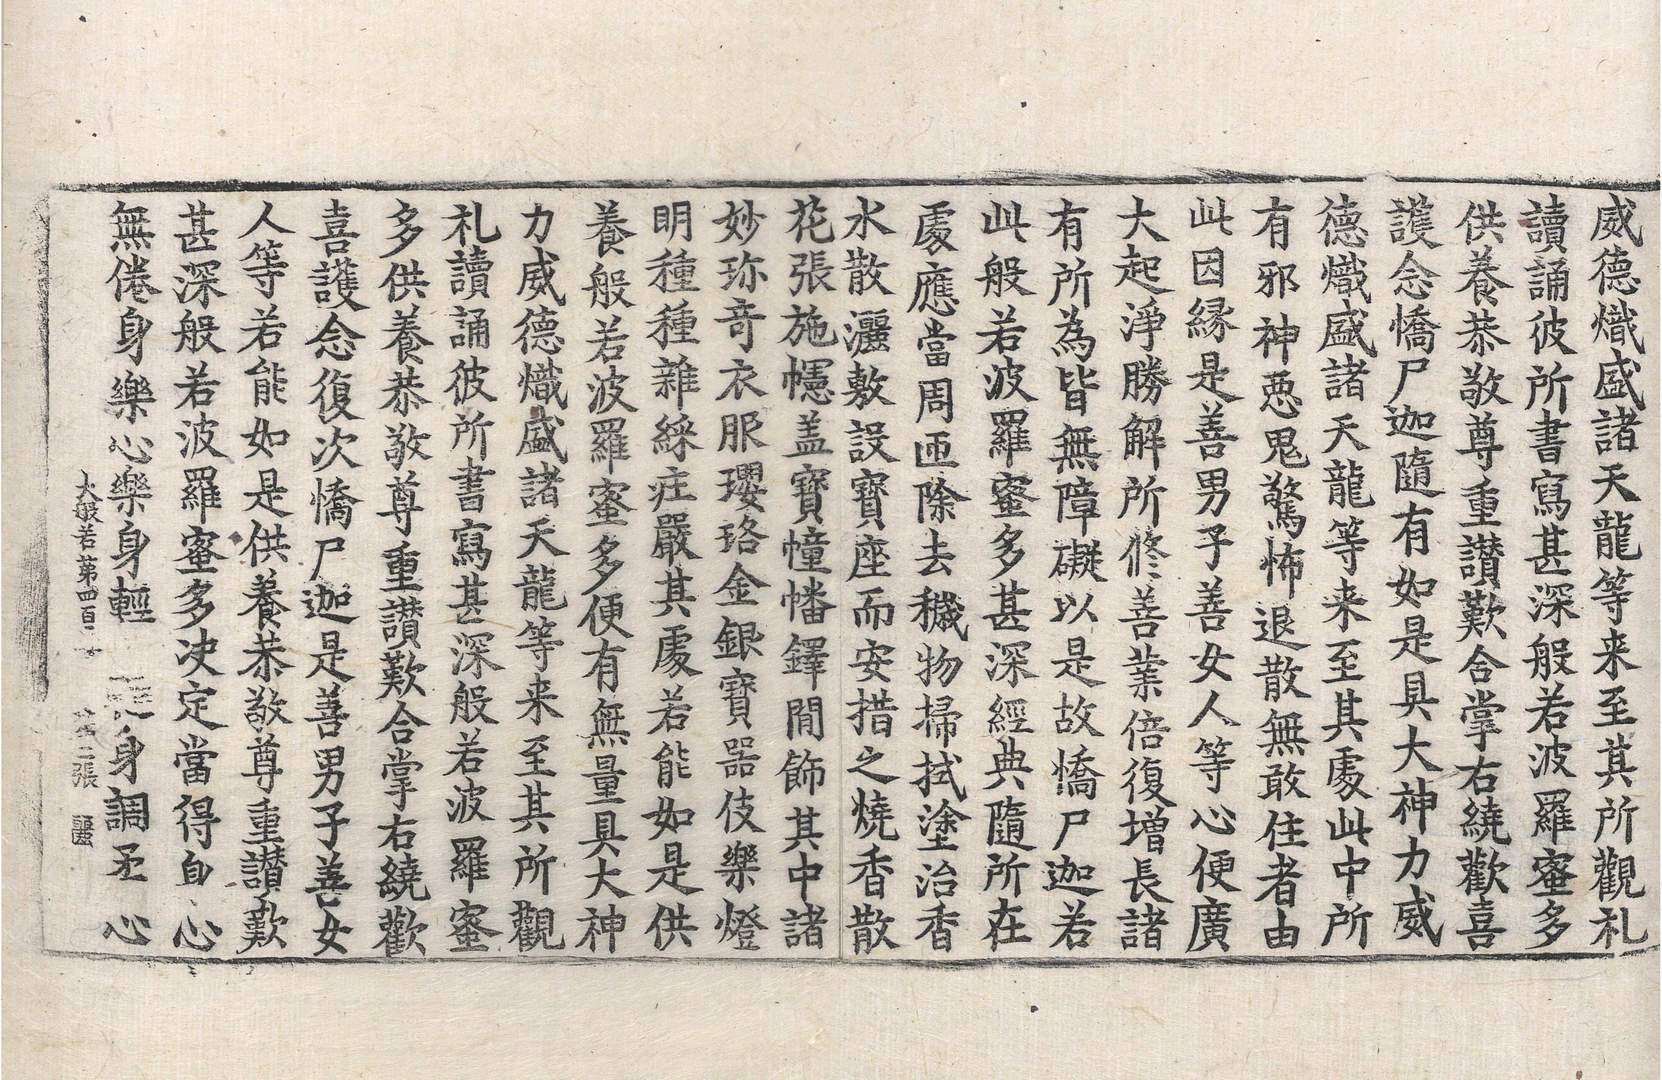 威德熾盛諸天龍等来至其所觀礼
讀誦彼所書寫甚深般若波羅蜜多
供養恭敬尊重讃歎合掌右繞歡喜
護念憍尸迦隨有如是具大神力威
德熾盛諸天龍等来至其處此中所
有邪神悪鬼驚怖退散無敢住者由
此因縁是善男子善女人等心便廣
大起淨勝解所修善業倍復増長諸
有所為皆無障礙以是故憍尸迦若
此般若波羅蜜多甚深經典隨所在
處應當周匝除去穢物掃拭塗治香
水散灑敷設寶座而安措之燒香散
花張施幰盖寶幢幡鐸間飾其中諸
妙珎奇衣服瓔珞金銀寶器伎樂燈
明種種雜綵庄嚴其處若能如是供
養般若波羅蜜多便有無量具大神
力威德熾盛諸天龍等来至其所觀
礼讀誦彼所書寫甚深般若波羅蜜
多供養恭敬尊重讃歎合掌右繞歡
喜護念復次憍尸迦是善男子善女
人等若能如是供養恭敬尊重讃歎
甚深般若波羅蜜多决定當得身心
無倦身樂心樂身輕身調柔心
大般若第四百二 二張